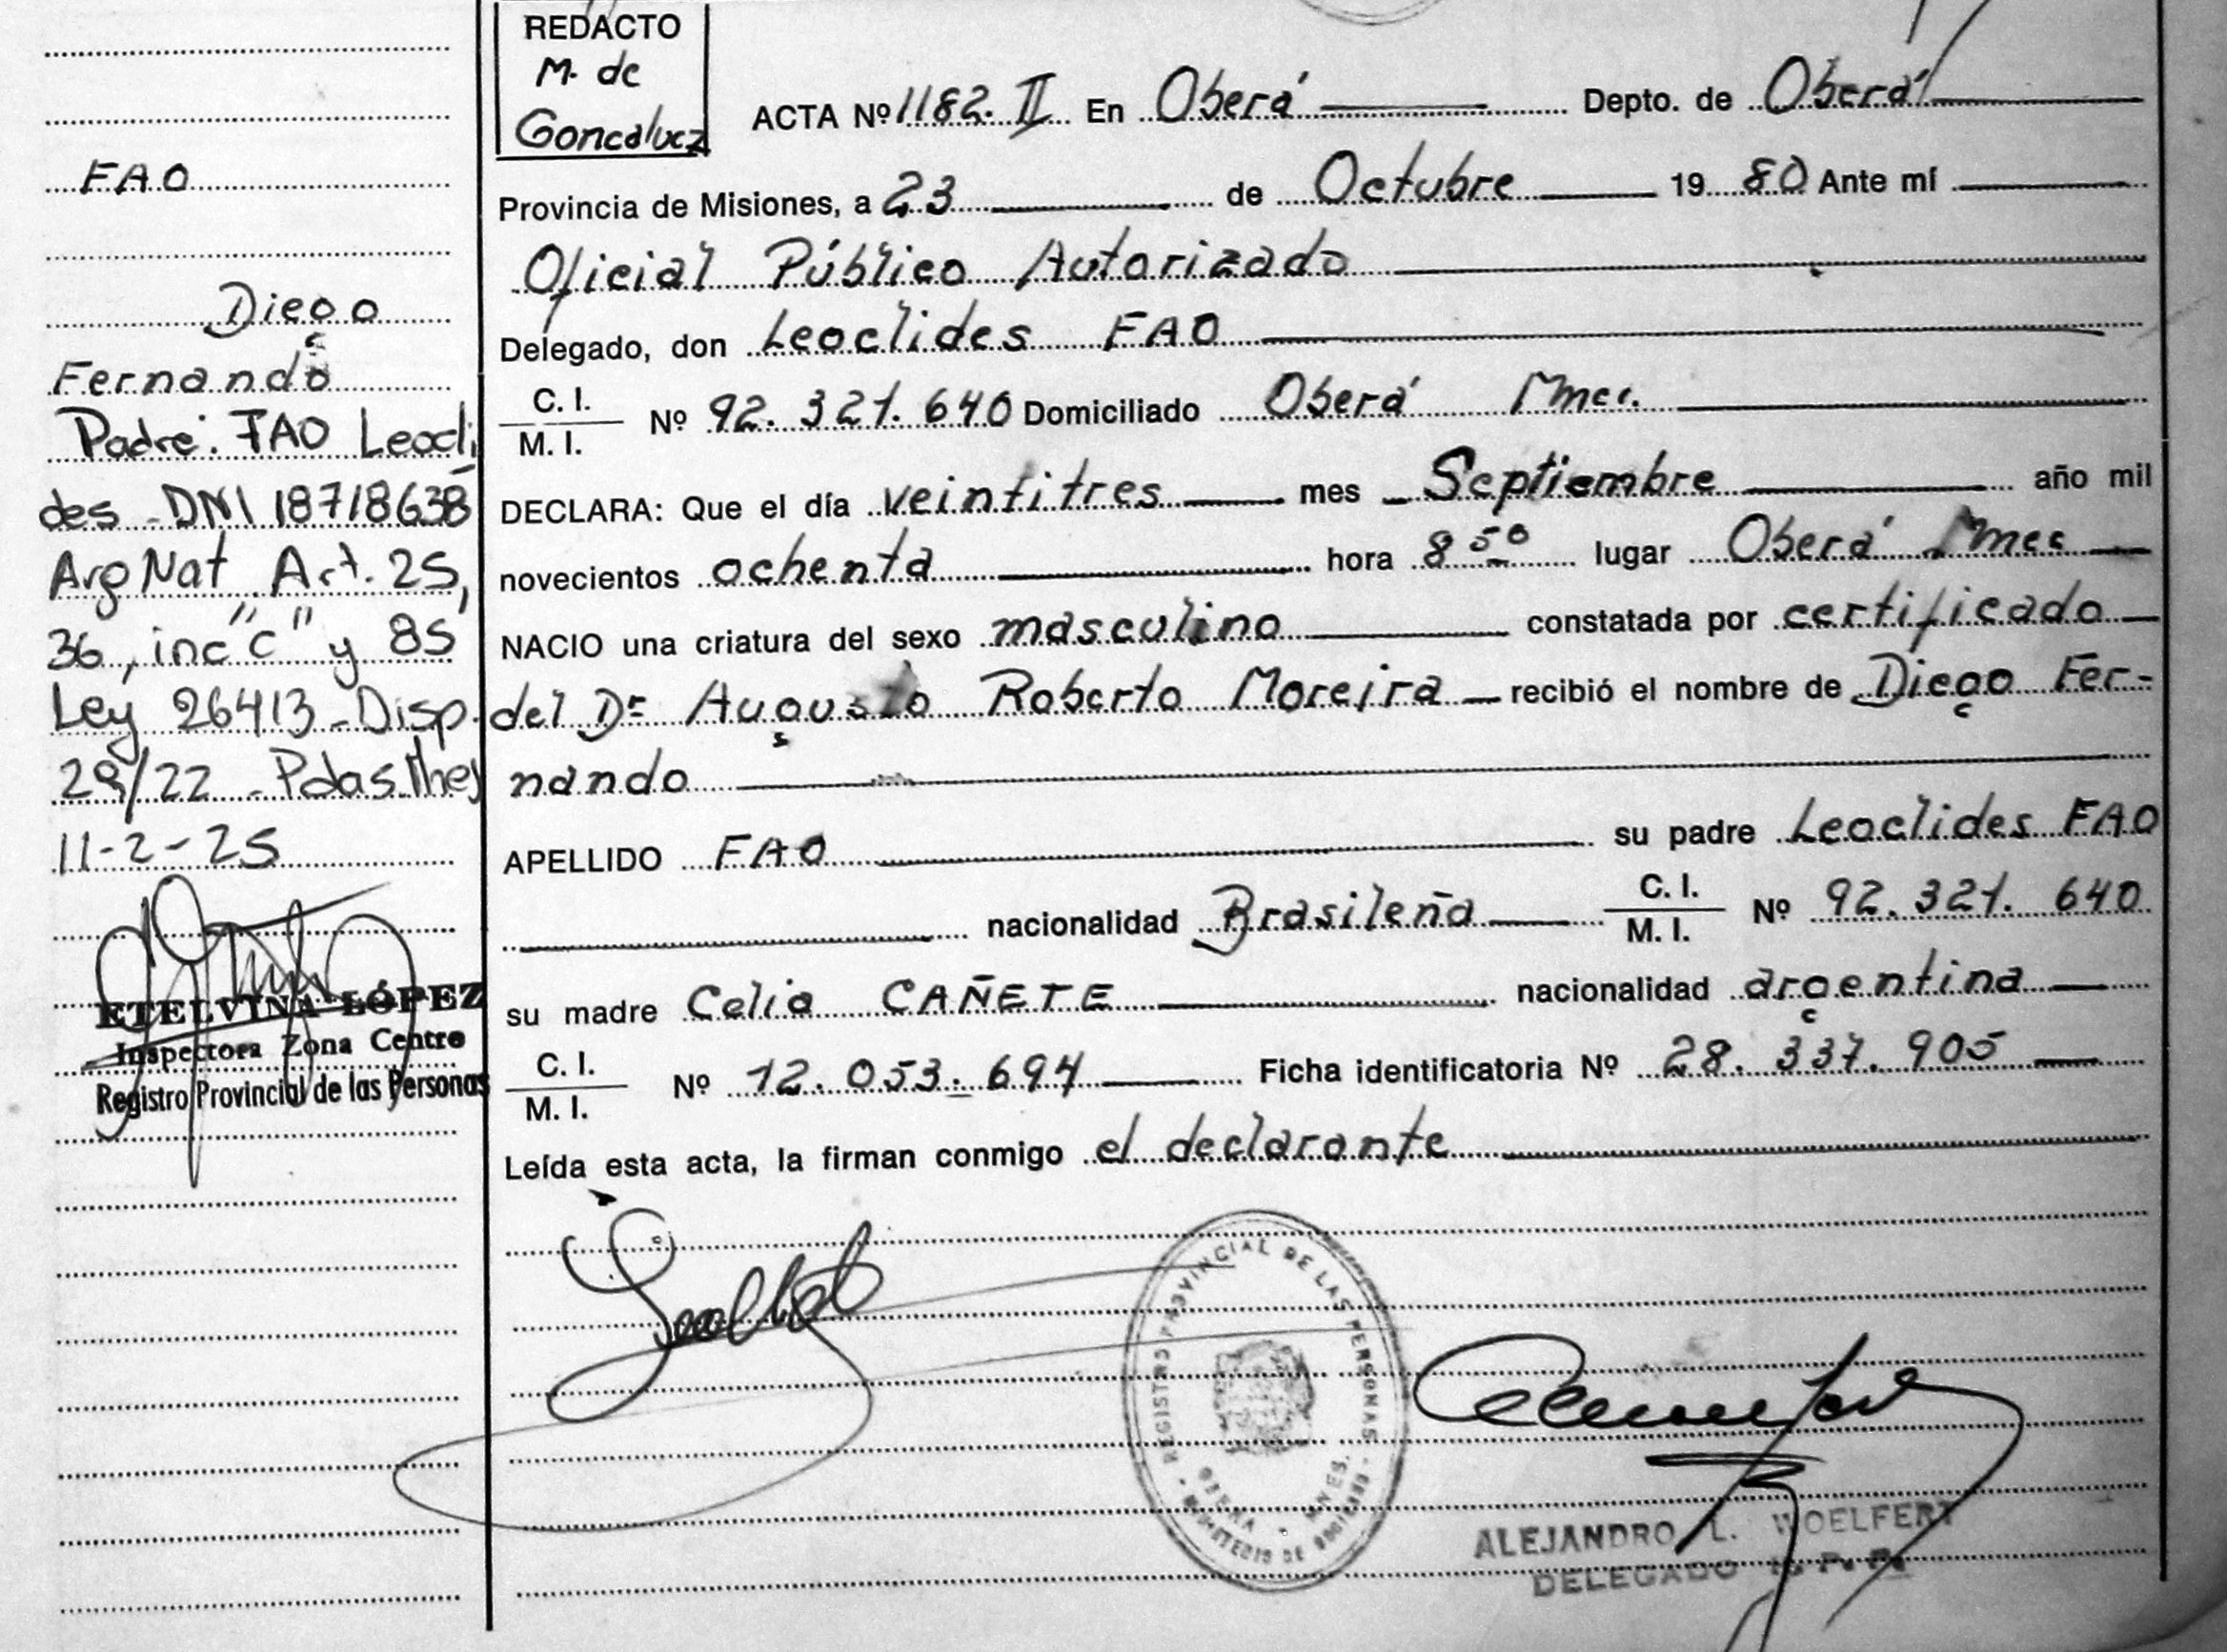 REDACTO
M. de
Goncalvez
ACTA Nº 1182. II En Oberá Depto. de Oberá
Provincia de Misiones, a 23 de Octubre 1980 Ante mí
Oficial Público Autorizado
Delegado, don Leoclides FAO
C. I.
M. I.
Nº 92.321.640 Domiciliado Oberá Mnes.
DECLARA: Que el día veintitres mes Septiembre año mil
novecientos ochenta hora 8 50 lugar Oberá Mnes
NACIO una criatura del sexo masculino constatada por certificado
del Dr Augusto Roberto Moreira recibió el nombre de Diego Fer-
nando
APELLIDO FAO su padre Leoclides FAO
nacionalidad Brasileña C. I. M. I. Nº 92.321.640
su madre Celia CAÑETE nacionalidad argentina
C. I.
M. I.
Nº 12.053.694 Ficha identificatoria Nº 28.337.905
Leída esta acta, la firman conmigo el declarante
FAO
Diego
Fernando
Padre: FAO Leocli
des - DNI 18718638
Arg Nat Art. 25,
36, inc "c" y 85
Ley 26413 - Disp.
29/22 - Pdas Mnes
11-2-25
ETELVINA LÓPEZ
Inspectora Zona Centro
Registro Provincial de las Personas
REGISTRO PROVINCIAL DE LAS PERSONAS
OBERA - MNES.
ALEJANDRO L. WOELFERT
DELEGADO R. P. P.